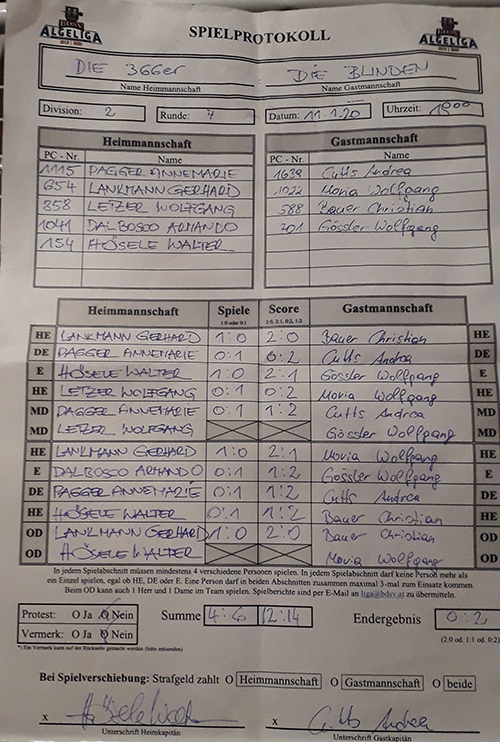 BDSV
ALGELIGA
SPIELPROTOKOLL
BDSV
ALGELIGA
DIE 366er DIE BLINDEN
Name Heimmannschaft Name Gastmannschaft
Division: 2 Runde: 7 Datum: 11.1.20 Uhrzeit: 18:00
Heimmannschaft Gastmannschaft
PC - Nr. Name PC - Nr. Name
1115 PAGGER ANNEMARIE 1639 Cutts Andrea
654 LANKMANN GERHARD 1022 Movia Wolfgang
358 LETZER WOLFGANG 588 Bauer Christian
1041 DALBOSCO ARMANDO 201 Gössler Wolfgang
154 HÖSELE WALTER
Heimmannschaft Spiele Score Gastmannschaft
1:0 oder 0:1 2:0, 2:1, 0:2, 1:2
HE LANKMANN GERHARD 1:0 2:0 Bauer Christian HE
DE PAGGER ANNEMARIE 0:1 0:2 Cutts Andrea DE
E HÖSELE WALTER 1:0 2:1 Gössler Wolfgang E
HE LETZER WOLFGANG 0:1 0:2 Movia Wolfgang HE
MD PAGGER ANNEMARIE 0:1 1:2 Cutts Andrea MD
MD LETZER WOLFGANG Gössler Wolfgang MD
HE LANKMANN GERHARD 1:0 2:1 Movia Wolfgang HE
E DALBOSCO ARMANDO 0:1 1:2 Gössler Wolfgang E
DE PAGGER ANNEMARIE 0:1 1:2 Cutts Andrea DE
HE HÖSELE WALTER 0:1 1:2 Bauer Christian HE
OD LANKMANN GERHARD 1:0 2:0 Bauer Christian OD
OD HÖSELE WALTER Movia Wolfgang OD
In jedem Spielabschnitt müssen mindestens 4 verschiedene Personen spielen. In jedem Spielabschnitt darf keine Person mehr als
ein Einzel spielen, egal ob HE, DE oder E. Eine Person darf in beiden Abschnitten zusammen maximal 3-mal zum Einsatz kommen.
Beim OD kann auch 1 Herr und 1 Dame im Team spielen. Spielberichte sind per E-Mail an liga@bdsv.at zu übermitteln.
Protest: O Ja O Nein Summe 4:6 12:14 Endergebnis 0:2
Vermerk: O Ja O Nein (2:0 od. 1:1 od. 0:2)
*) Ein Vermerk kann auf der Rückseite gemacht werden (bitte ankreuzen)
Bei Spielverschiebung: Strafgeld zahlt O Heimmannschaft O Gastmannschaft O beide
x Hösele Walter x Cutts Andrea
Unterschrift Heimkapitän Unterschrift Gastkapitän